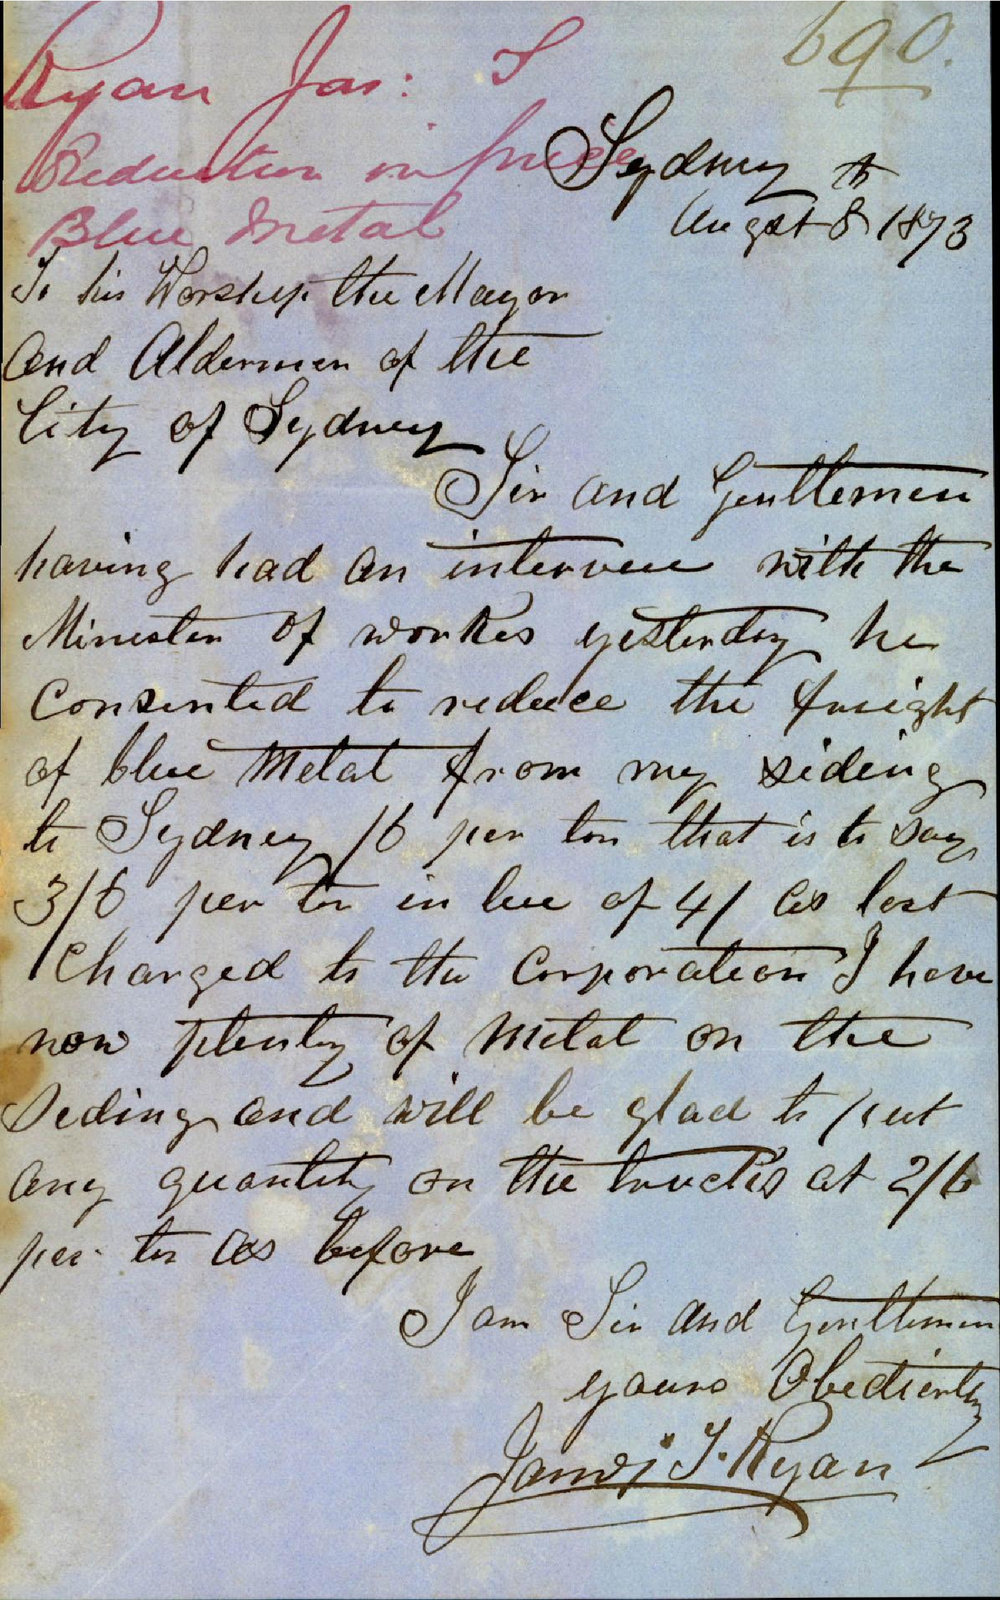 690.
Ryan Jas: T
Reduction in price
Blue Metal
Sydney
Augst 8th 1873
To his Worship the Mayor
and Aldermen of the
City of Sydney
Sir and Gentlemen
having had an interveue with the
Minester of workes yesterday he
Consented to reduce the freight
of blue Metal from my siding
to Sydney /6 per ton that is to Say
3/6 per ton in lue of 4/ as last
Charged to the Corporation I have
now plenty of Metal on the
Seding and will be glad to put
any quantity on the trucks at 2/6
per ton as before
I am Sir and Gentlemen
yours Obediently
James T. Ryan